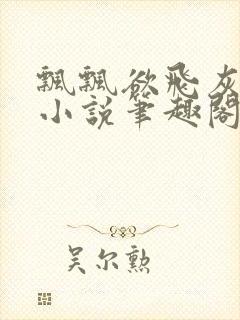 飄飄欲飛灰
小說筆趣閣
吴尔勲